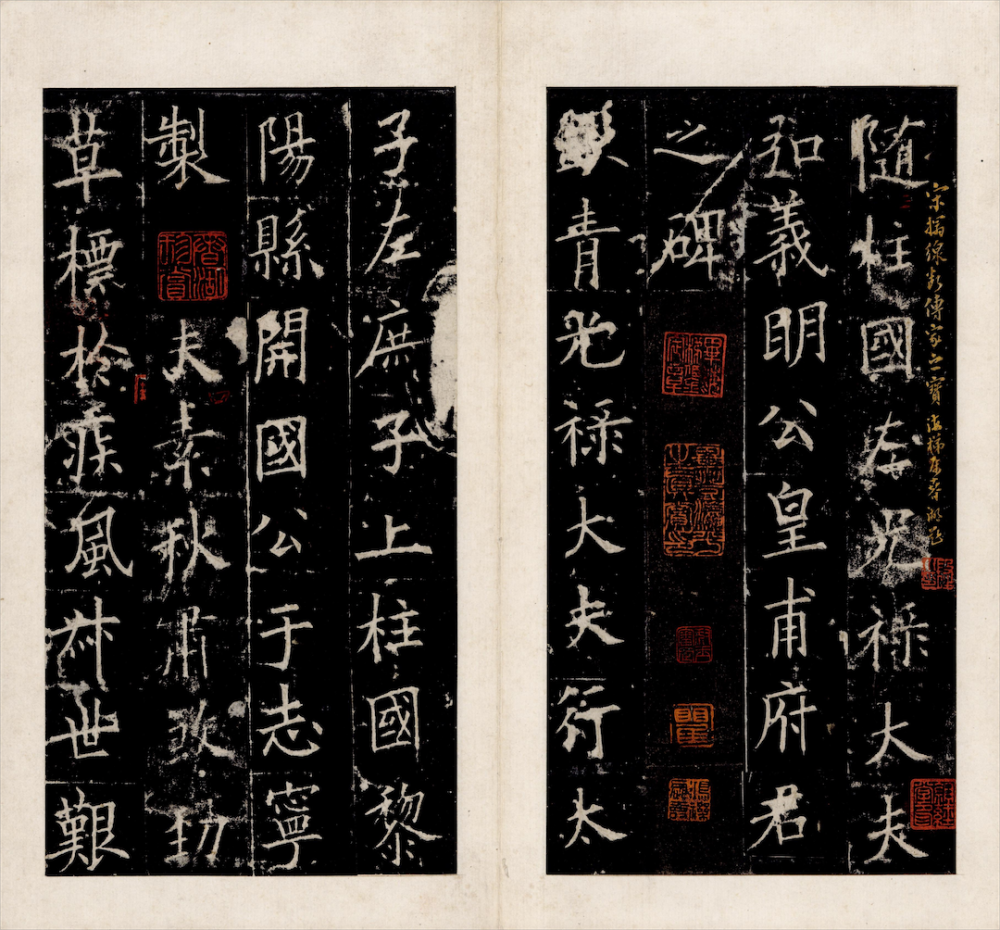 宋搨線斷傳家之寶
隨柱國左光祿大夫
弘義明公皇甫府君
之碑
青光祿大夫行太
子左庶子上柱國黎
陽縣開國公于志寧
製 夫素秋肅勁
草標於疾風叔世艱